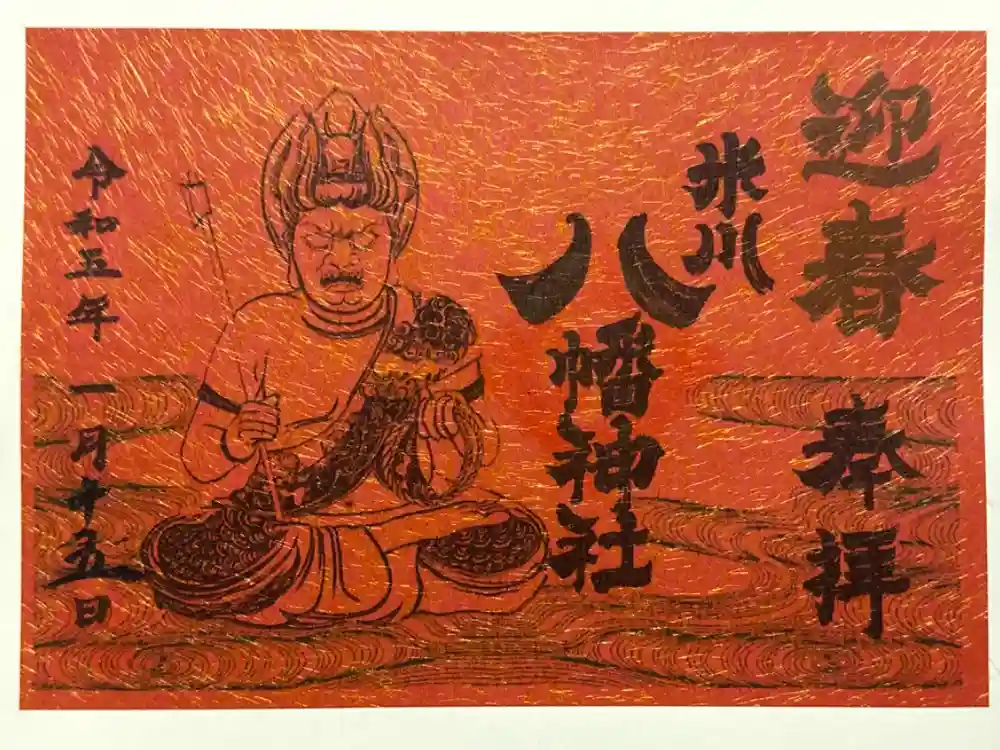 迎春
奉拝
氷川
八幡神社
令和三年一月十五日